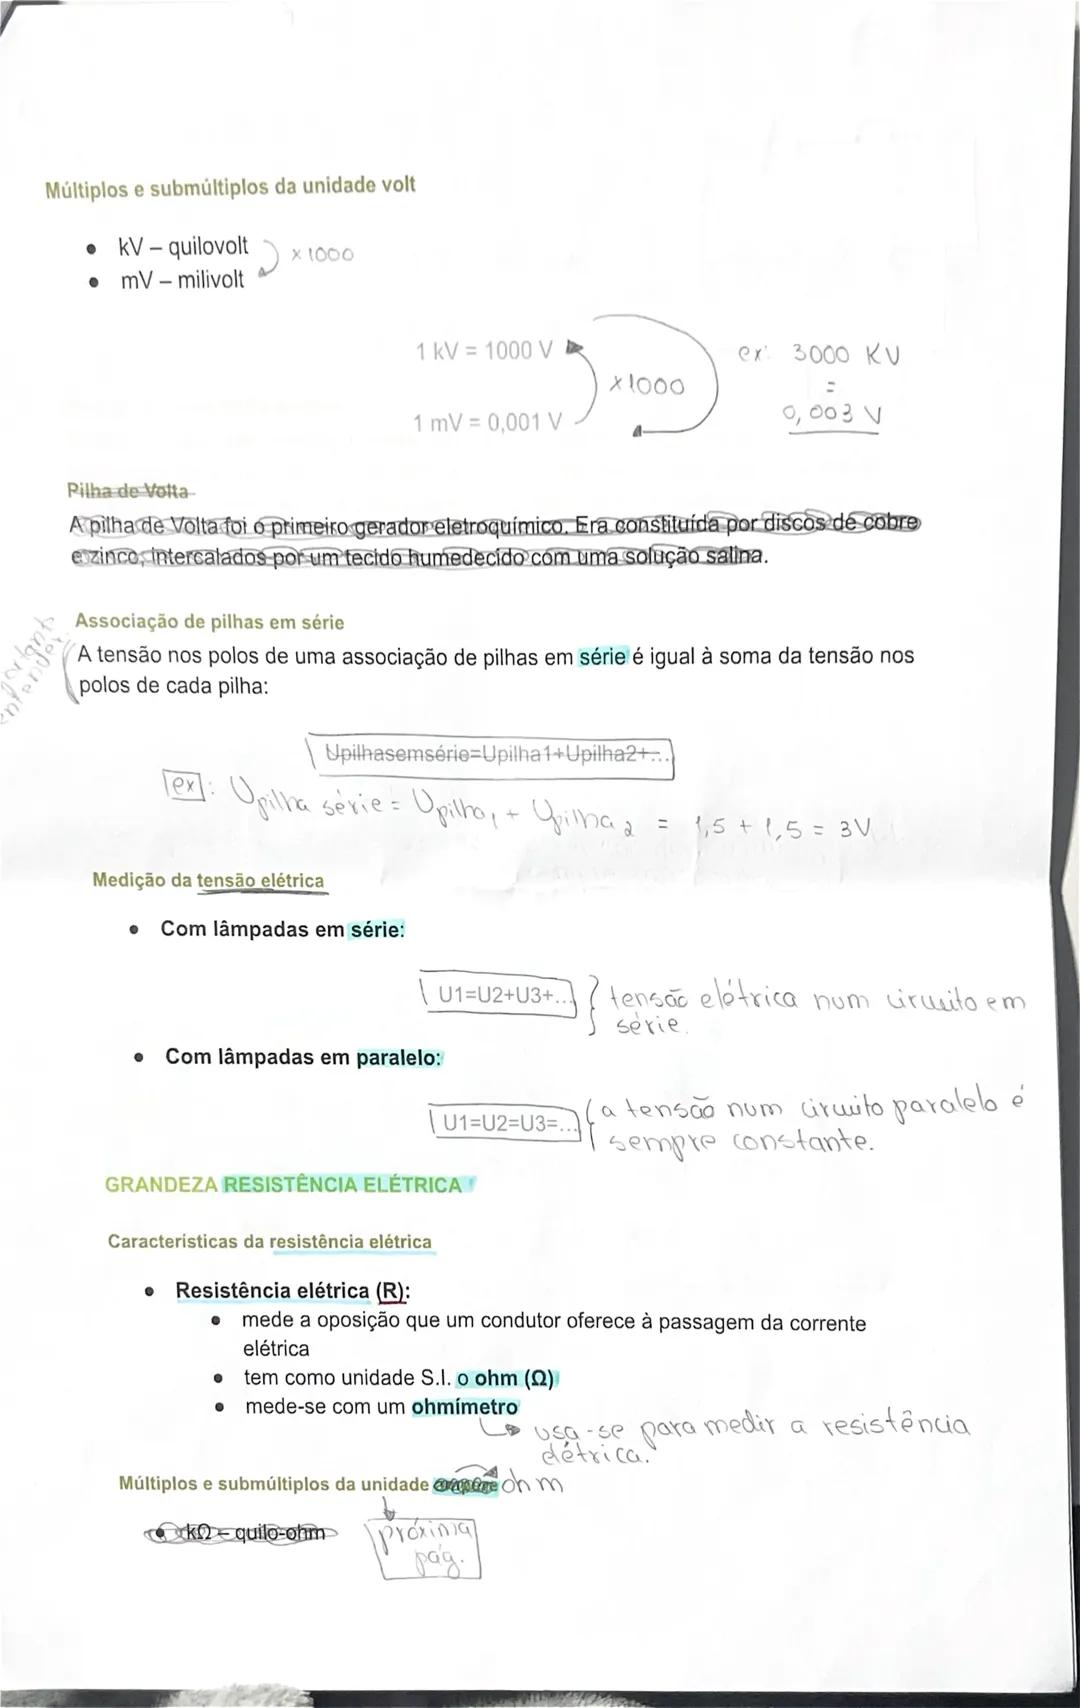 Múltiplos e submúltiplos da unidade volt
• kV – quilovolt
x 1000
• mV – milivolt
1 kV = 1000 V
ex: 3000 KV
x1000
=
1 mV = 0,001 V
0,003 V
Pilha de Volta
A pilha de Volta foi o primeiro gerador eletroquímico. Era constituída por discos de cobre
e zinco, intercalados por um tecido humedecido com uma solução salina.
Associação de pilhas em série
entender
A tensão nos polos de uma associação de pilhas em série é igual à soma da tensão nos
polos de cada pilha:
Upilhasemsérie=Upilha1+Upilha2+...
ex: Upilha série = Upilha1 + Upilha2 = 1,5 + 1,5 = 3V
Medição da tensão elétrica
• Com lâmpadas em série:
U1=U2+U3+... tensão elétrica num circuito em
série.
• Com lâmpadas em paralelo:
U1=U2=U3=... a tensão num circuito paralelo é
sempre constante.
GRANDEZA RESISTÊNCIA ELÉTRICA
Características da resistência elétrica
• Resistência elétrica (R):
• mede a oposição que um condutor oferece à passagem da corrente
elétrica
• tem como unidade S.I. o ohm (Ω)
• mede-se com um ohmímetro
usa-se para medir a resistência
elétrica.
Múltiplos e submúltiplos da unidade ampere ohm
• kΩ – quilo-ohm
próxima
pág.